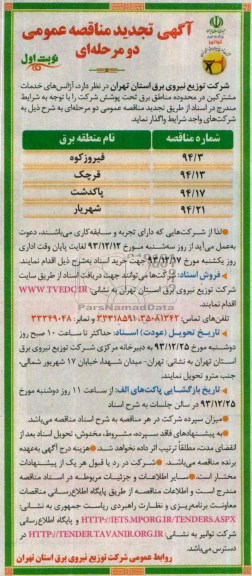 آگهی تجدید مناقصه عمومی
دو مرحله‌ای
نوبت اول
شرکت توزیع نیروی برق استان تهران در نظر دارد، آژانس‌های خدمات
مشترکین در محدوده مناطق برق تحت پوشش شرکت را با توجه به شرایط
مندرج در اسناد از طریق تجدید مناقصه عمومی دو مرحله‌ای به شرح ذیل به
شرکت‌های واجد شرایط واگذار نماید.
شماره مناقصه نام منطقه برق
۹۴/۳ فیروزکوه
۹۴/۱۳ قرچک
۹۴/۱۷ پاکدشت
۹۴/۲۱ شهریار
لذا از شرکت‌هایی که دارای تجربه و سابقه کاری می‌باشند، دعوت
به‌عمل می‌آید از روز سه‌شنبه مورخ ۹۳/۱۲/۱۲ لغایت پایان وقت اداری
روز یکشنبه مورخ ۹۳/۱۲/۱۷ جهت خرید اسناد به‌شرح ذیل اقدام نمایند.
فروش اسناد: شرکت‌ها می‌توانند جهت دریافت اسناد از طریق سایت
شرکت توزیع نیروی برق استان تهران به نشانی: WWW.TVEDC.IR
اقدام نمایند.
تلفن‌های تماس: ۳۵۰۸۱۳۴۲-۳۳۳۱۸۵۹۱ و نمابر: ۳۳۳۴۹۰۴۸
تاریخ تحویل (عودت) اسناد: حداکثر تا ساعت ۱۰ صبح روز
دوشنبه مورخ ۹۳/۱۲/۲۵ به دبیرخانه مرکزی شرکت توزیع نیروی برق
استان تهران به نشانی: تهران- میدان شهدا، خیابان ۱۷ شهریور شمالی،
جنب مترو تحویل نمایند.
تاریخ بازگشایی پاکت‌های الف: از ساعت ۱۱ روز دوشنبه مورخ
۹۳/۱۲/۲۵ در سالن جلسات به شرح اسناد
میزان سپرده شرکت در هر مناقصه به شرح اسناد مناقصه می‌باشد.
به پیشنهادهای فاقد سپرده، مشروط، مخدوش، تحویل اسناد بعد از
انقضای مدت، مطلقاً ترتیب اثر داده نخواهد شد. هزینه درج آگهی به‌عهده
برنده مناقصه می‌باشد. شرکت در رد یا قبول هر یک از پیشنهادات
مختار است. سایر اطلاعات و جزئیات مربوطه در اسناد مناقصه
مندرج است و اطلاعات مناقصه از طریق پایگاه اطلاع‌رسانی مناقصات
معاونت برنامه‌ریزی و نظارت راهبردی ریاست جمهوری به نشانی:
HTTP://IETS.MPORG.IR/TENDERS.ASPX و پایگاه اطلاع‌رسانی
شرکت توانیر به نشانی: HTTP://TENDER.TAVANIR.ORG.IR در
دسترس می‌باشد.
روابط عمومی شرکت توزیع نیروی برق استان تهران